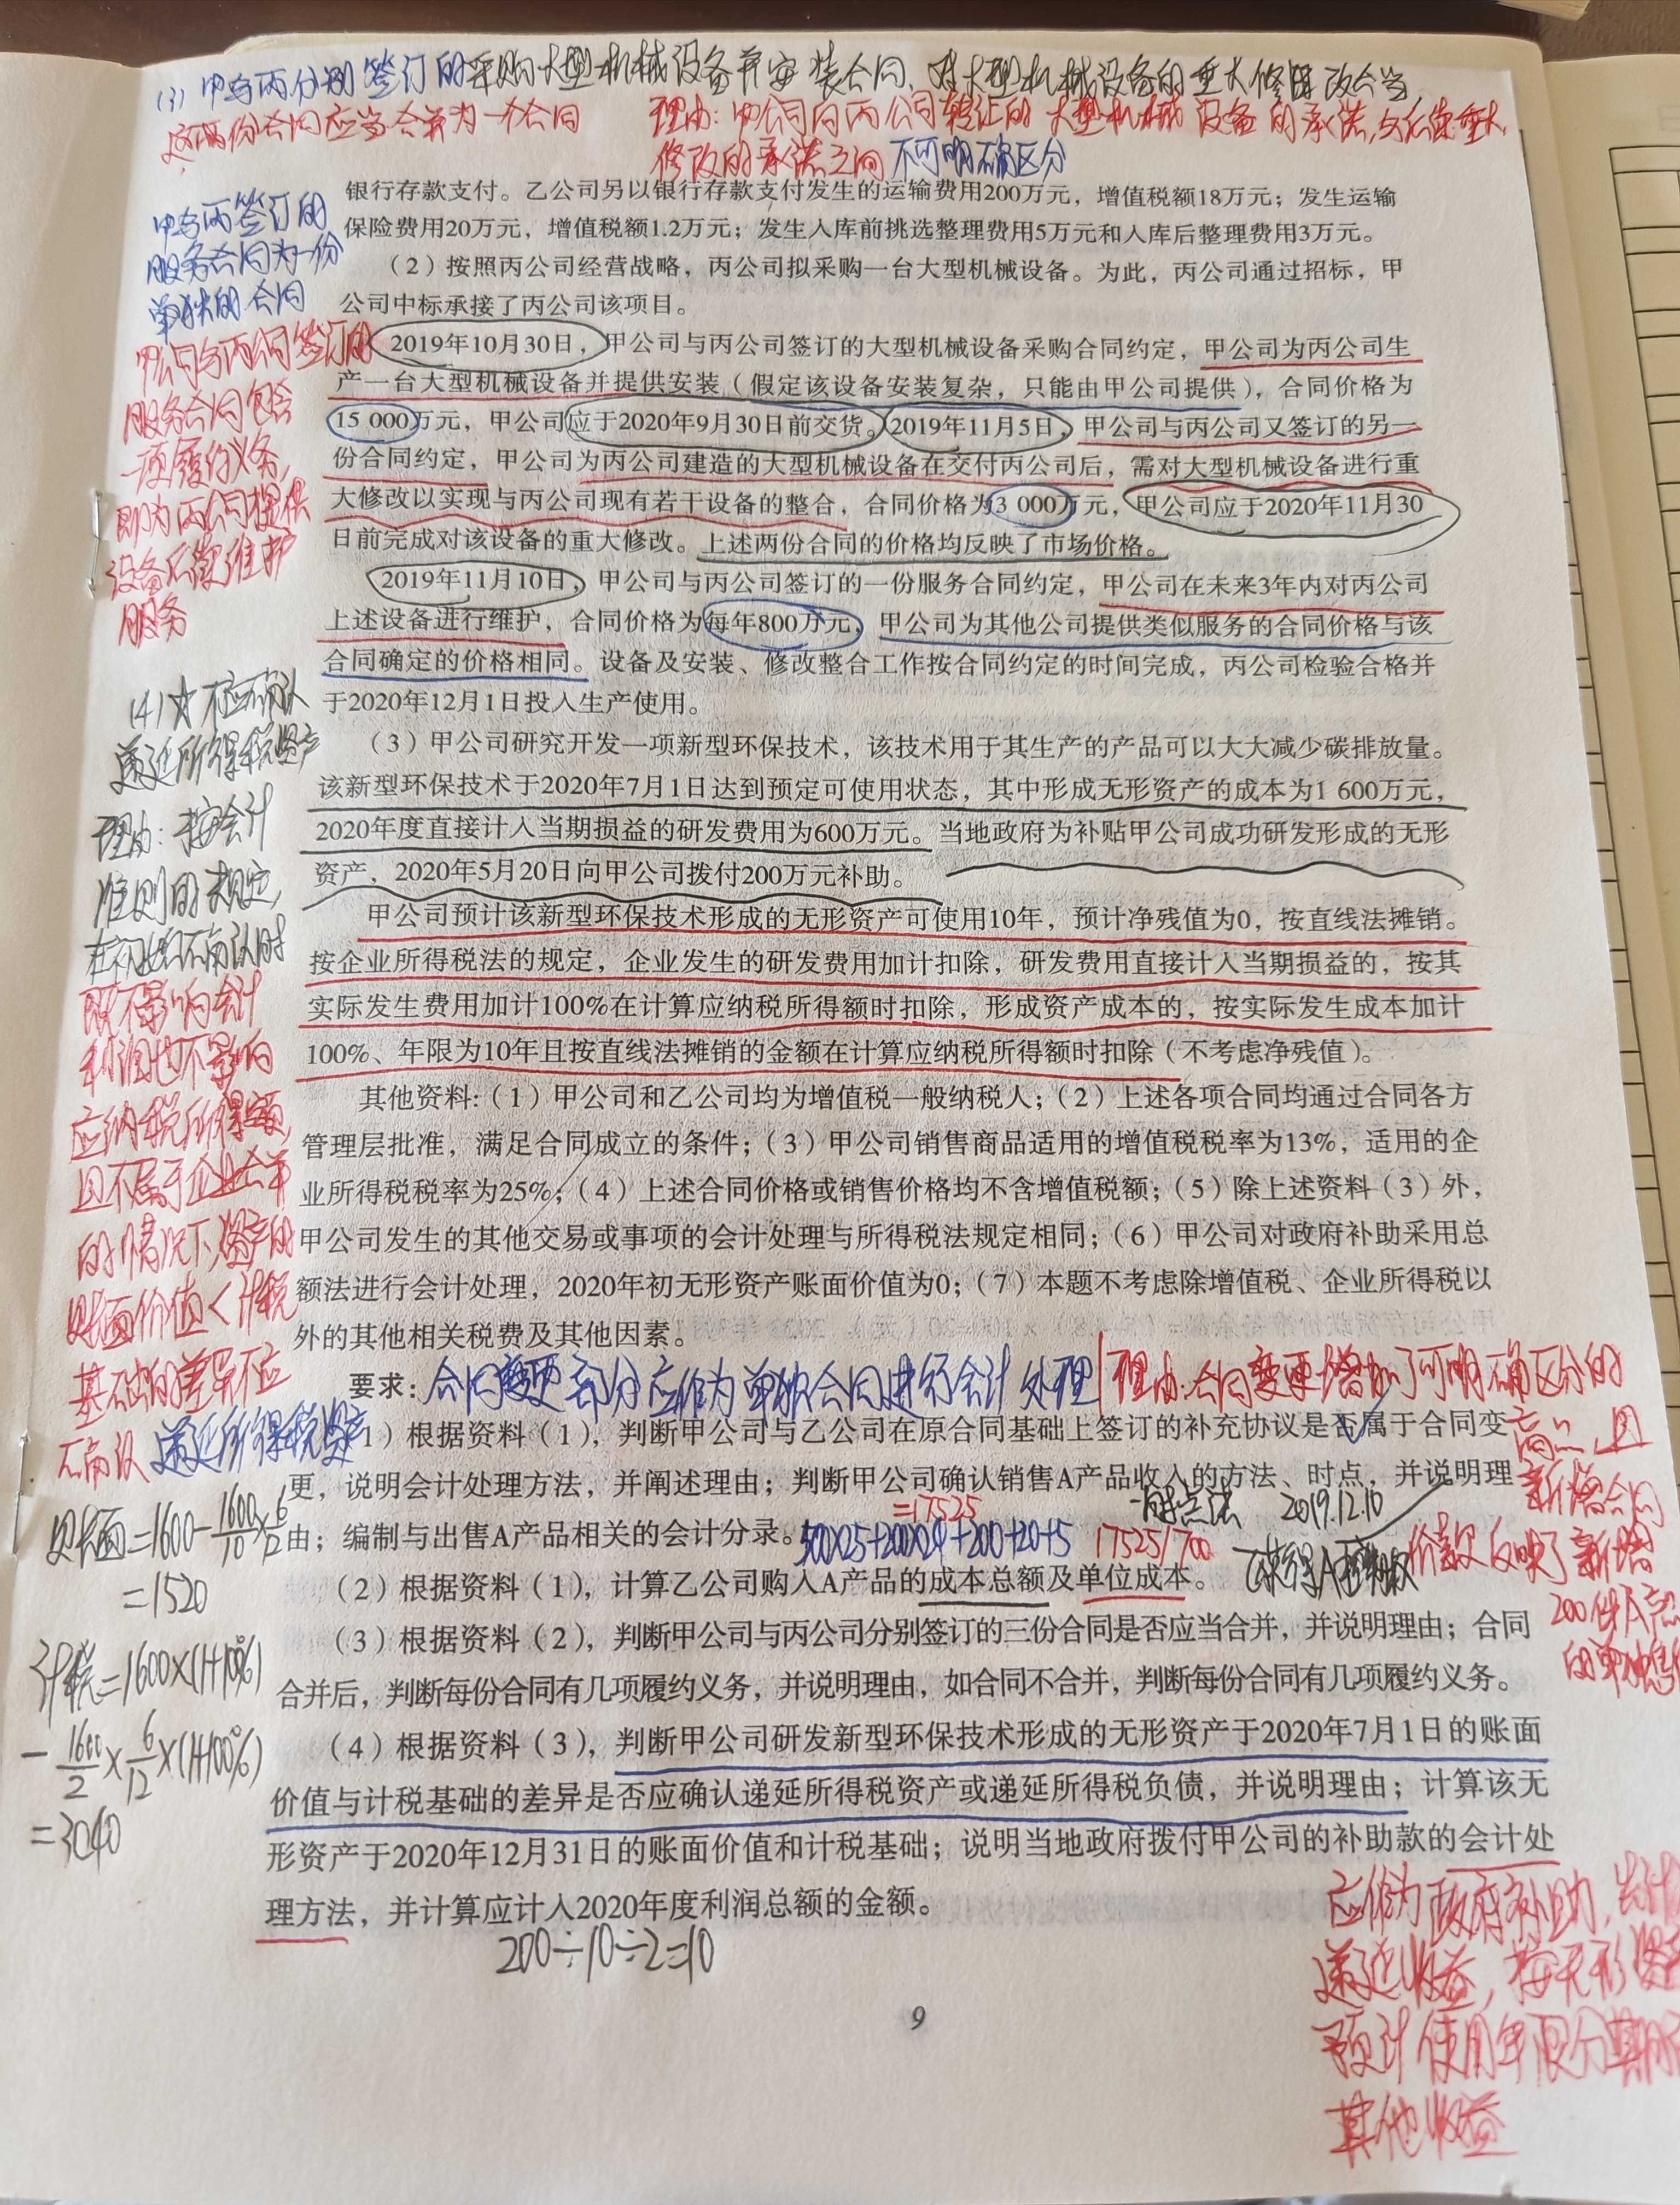 (3) 甲与丙分别签订的采购大型机械设备并安装合同、对大型机械设备的重大修改合当
这两份合同应当合并为一个合同 理由：甲公司向丙公司转让的大型机械设备的承诺，与后续重大
修改的承诺之间不可明确区分
银行存款支付。乙公司另以银行存款支付发生的运输费用200万元，增值税额18万元；发生运输
保险费用20万元，增值税额1.2万元；发生入库前挑选整理费用5万元和入库后整理费用3万元。
（2）按照丙公司经营战略，丙公司拟采购一台大型机械设备。为此，丙公司通过招标，甲
公司中标承接了丙公司该项目。
2019年10月30日，甲公司与丙公司签订的大型机械设备采购合同约定，甲公司为丙公司生
产一台大型机械设备并提供安装（假定该设备安装复杂，只能由甲公司提供），合同价格为
15 000万元，甲公司应于2020年9月30日前交货。2019年11月5日，甲公司与丙公司又签订的另一
份合同约定，甲公司为丙公司建造的大型机械设备在交付丙公司后，需对大型机械设备进行重
大修改以实现与丙公司现有若干设备的整合，合同价格为3 000万元，甲公司应于2020年11月30
日前完成对该设备的重大修改。上述两份合同的价格均反映了市场价格。
2019年11月10日，甲公司与丙公司签订的一份服务合同约定，甲公司在未来3年内对丙公司
上述设备进行维护，合同价格为每年800万元，甲公司为其他公司提供类似服务的合同价格与该
合同确定的价格相同。设备及安装、修改整合工作按合同约定的时间完成，丙公司检验合格并
于2020年12月1日投入生产使用。
（3）甲公司研究开发一项新型环保技术，该技术用于其生产的产品可以大大减少碳排放量。
该新型环保技术于2020年7月1日达到预定可使用状态，其中形成无形资产的成本为1 600万元，
2020年度直接计入当期损益的研发费用为600万元。当地政府为补贴甲公司成功研发形成的无形
资产，2020年5月20日向甲公司拨付200万元补助。
甲公司预计该新型环保技术形成的无形资产可使用10年，预计净残值为0，按直线法摊销。
按企业所得税法的规定，企业发生的研发费用加计扣除，研发费用直接计入当期损益的，按其
实际发生费用加计100%在计算应纳税所得额时扣除，形成资产成本的，按实际发生成本加计
100%、年限为10年且按直线法摊销的金额在计算应纳税所得额时扣除（不考虑净残值）。
其他资料：（1）甲公司和乙公司均为增值税一般纳税人；（2）上述各项合同均通过合同各方
管理层批准，满足合同成立的条件；（3）甲公司销售商品适用的增值税税率为13%，适用的企
业所得税税率为25%；（4）上述合同价格或销售价格均不含增值税额；（5）除上述资料（3）外，
甲公司发生的其他交易或事项的会计处理与所得税法规定相同；（6）甲公司对政府补助采用总
额法进行会计处理，2020年初无形资产账面价值为0；（7）本题不考虑除增值税、企业所得税以
外的其他相关税费及其他因素。
要求：合同变更部分应作为单独合同进行会计处理 理由：合同变更增加了可明确区分的
商品，且
新增合同
价款反映了新增
200件A产品
的单独售
（1）根据资料（1），判断甲公司与乙公司在原合同基础上签订的补充协议是否属于合同变
更，说明会计处理方法，并阐述理由；判断甲公司确认销售A产品收入的方法、时点，并说明理
由；编制与出售A产品相关的会计分录。
一时点法 2019.12.10
=17525
500×25+200×24+200+20+5 17525/700
（2）根据资料（1），计算乙公司购入A产品的成本总额及单位成本。
（3）根据资料（2），判断甲公司与丙公司分别签订的三份合同是否应当合并，并说明理由；合同
合并后，判断每份合同有几项履约义务，并说明理由，如合同不合并，判断每份合同有几项履约义务。
（4）根据资料（3），判断甲公司研发新型环保技术形成的无形资产于2020年7月1日的账面
价值与计税基础的差异是否应确认递延所得税资产或递延所得税负债，并说明理由；计算该无
形资产于2020年12月31日的账面价值和计税基础；说明当地政府拨付甲公司的补助款的会计处
理方法，并计算应计入2020年度利润总额的金额。
200÷10÷2=10
9
甲与丙签订的
服务合同为一份
单独的合同
甲公司与丙公司签订的
服务合同包含
一项履约义务，
即为丙公司提供
设备后续维护
服务
(4)☆不应确认
递延所得税资产
理由：按会计
准则的规定，
在初始确认时
既不影响会计
利润也不影响
应纳税所得额，
且不属于企业合并
的情况下，资产的
账面价值<计税
基础的差异不应
确认递延所得税资产
账面=1600-1600/10×6/12
=1520
计税=1600×(1+100%)
-1600/2×6/12×(1+100%)
=3040
应作为政府补助，
递延收益，按无形资
预计使用年限分期
其他收益